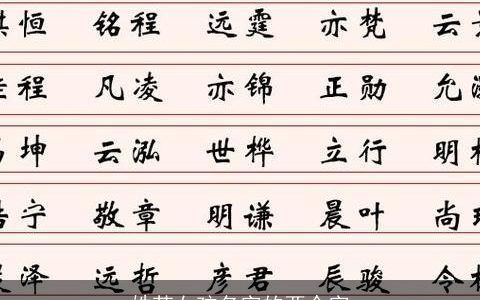 恒 铭程 远霆 亦梵 云
程 凡凌 亦锦 正勋 允
坤 云泓 世桦 立行 明
宁 敬章 明谦 晨叶 尚
泽 远哲 彦君 辰骏 令
女孩名字的两个字